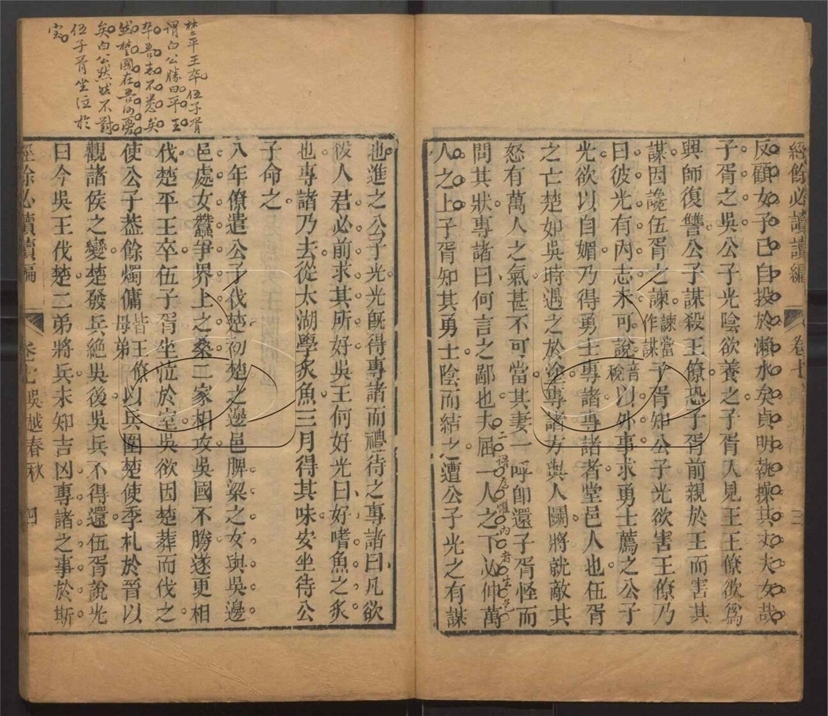 經餘必讀續編 卷七 三
反顧女子已自投於瀨水矣貞明執操其丈夫女哉
子胥之吳公子光陰欲養之子胥入見王王僚欲爲
興師復讐公子謀殺王僚恐子胥前親於王而害其
謀因讒伍胥之諫諫當作謀子胥知公子光欲害王僚乃
曰彼光有內志未可說音稅以外事求勇士薦之公子
光欲以自媚乃得勇士專諸專諸者堂邑人也伍胥
之亡楚如吳時遇之於途專諸方與人鬭將就敵其
怒有萬人之氣甚不可當其妻一呼卽還子胥怪而
問其狀專諸曰何言之鄙也夫屈一人之下必伸萬
人之上子胥知其勇士陰而結之遭公子光之有謀
楚平王卒伍子胥
謂白公勝曰平王
卒吾志不悉矣
然楚國在吾何憂
矣白公默然不對
伍子胥坐泣於
室
也進之公子光光旣得專諸而禮待之專諸曰凡欲
殺人君必前求其所好吳王何好光曰好嗜魚之炙
也專諸乃去從太湖學炙魚三月得其味安坐待公
子命之
八年僚遣公子伐楚初楚之邊邑脾梁之女與吳邊
邑處女蠶爭界上之桑二家相攻吳國不勝遂更相
伐楚平王卒伍子胥坐泣於室吳欲因楚葬而伐之
使公子蓋餘燭傭皆王僚母弟以兵圍楚使季札於晉以
觀諸侯之變楚發兵絕吳後吳兵不得還伍胥說光
曰今吳王伐楚二弟將兵未知吉凶專諸之事於斯
經餘必讀續編 卷七 吳越春秋 四